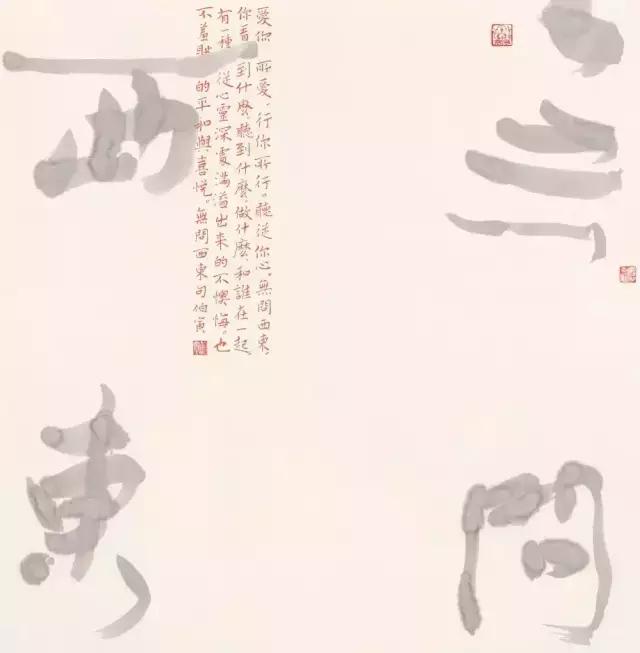 無問
西東
愛你所愛、行你所行。聽從你心。無問西東、
你看到什麼、聽到什麼、做什麼、和誰在一起、
有一種從心靈深處滿溢出來的不懊悔。也
不羞恥的平和與喜悅。無問西東句伯寅